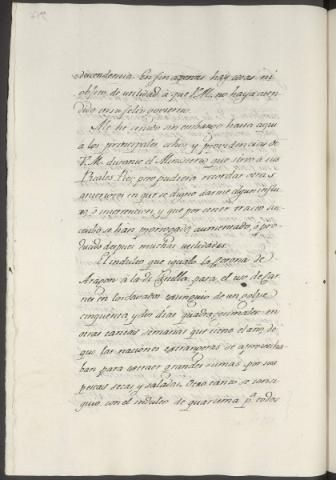 descendencia. En fin apenas hay cosa, ni
objeto de utilidad à que V.M. no haya aten
dido en su feliz govierno.
Me he ceñido sin embargo hasta aqui
à los principales echos, y providencias de
V.M. durante el Ministerio que sirvo à sus
Reales Pies; pero pudiera recordar otros
anteriores in que se dignó darme algun influ
xo, ò intervencion, y que por tener tracto suc
cesibo se han prorrogado, aumentado, ò pro
ducido despues muchas utilidades.
El indulto que igualó la Corona de
Aragon à la de Castilla, para el uso de Car
nes en los Savados extinguio de un golpe
cinquenta y dos dias quadragesimales en
otras tantas semanas que tiene el año, de
que las naciones extrangeras se aprovecha
ban para extraer grandes sumas por sus
pescas secas, y saladas. Otro tanto se consi
guió con el indulto de quaresma pr. todos